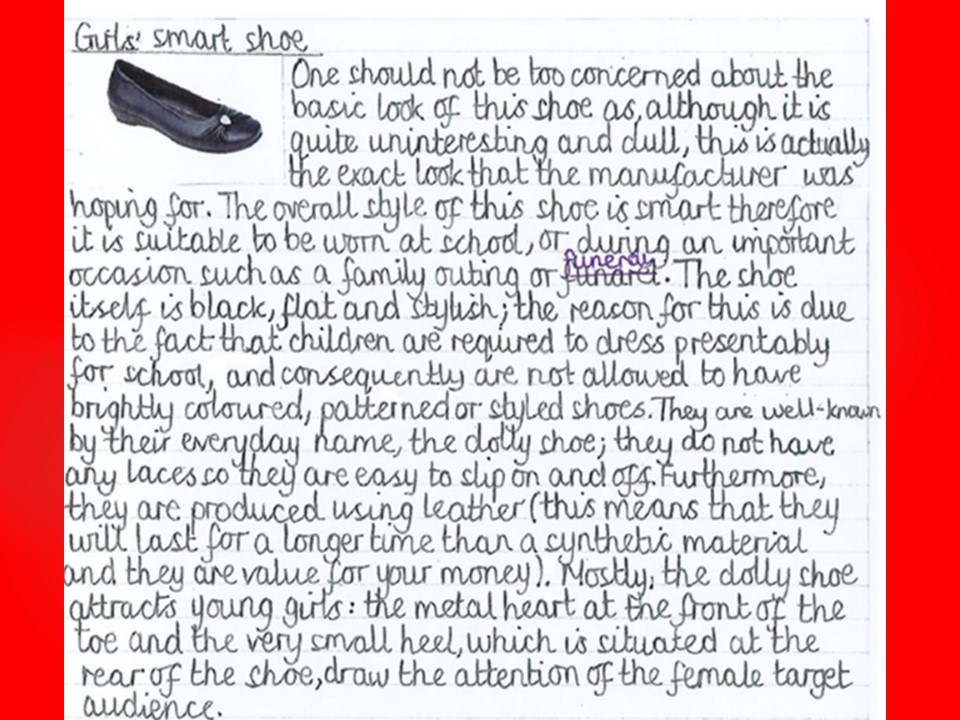 Girls' smart shoe
One should not be too concerned about the
basic look of this shoe as, although it is
quite uninteresting and dull, this is actually
the exact look that the manufacturer was
hoping for. The overall style of this shoe is smart therefore
it is suitable to be worn at school, or during an important
funeral
occasion such as a family outing or funarel. The shoe
itself is black, flat and stylish; the reason for this is due
to the fact that children are required to dress presentably
for school, and consequently are not allowed to have
brightly coloured, patterned or styled shoes. They are well-known
by their everyday name, the dolly shoe; they do not have
any laces so they are easy to slip on and off. Furthermore,
they are produced using leather (this means that they
will last for a longer time than a synthetic material
and they are value for your money). Mostly, the dolly shoe
attracts young girls: the metal heart at the front of the
toe and the very small heel, which is situated at the
rear of the shoe, draw the attention of the female target
audience.